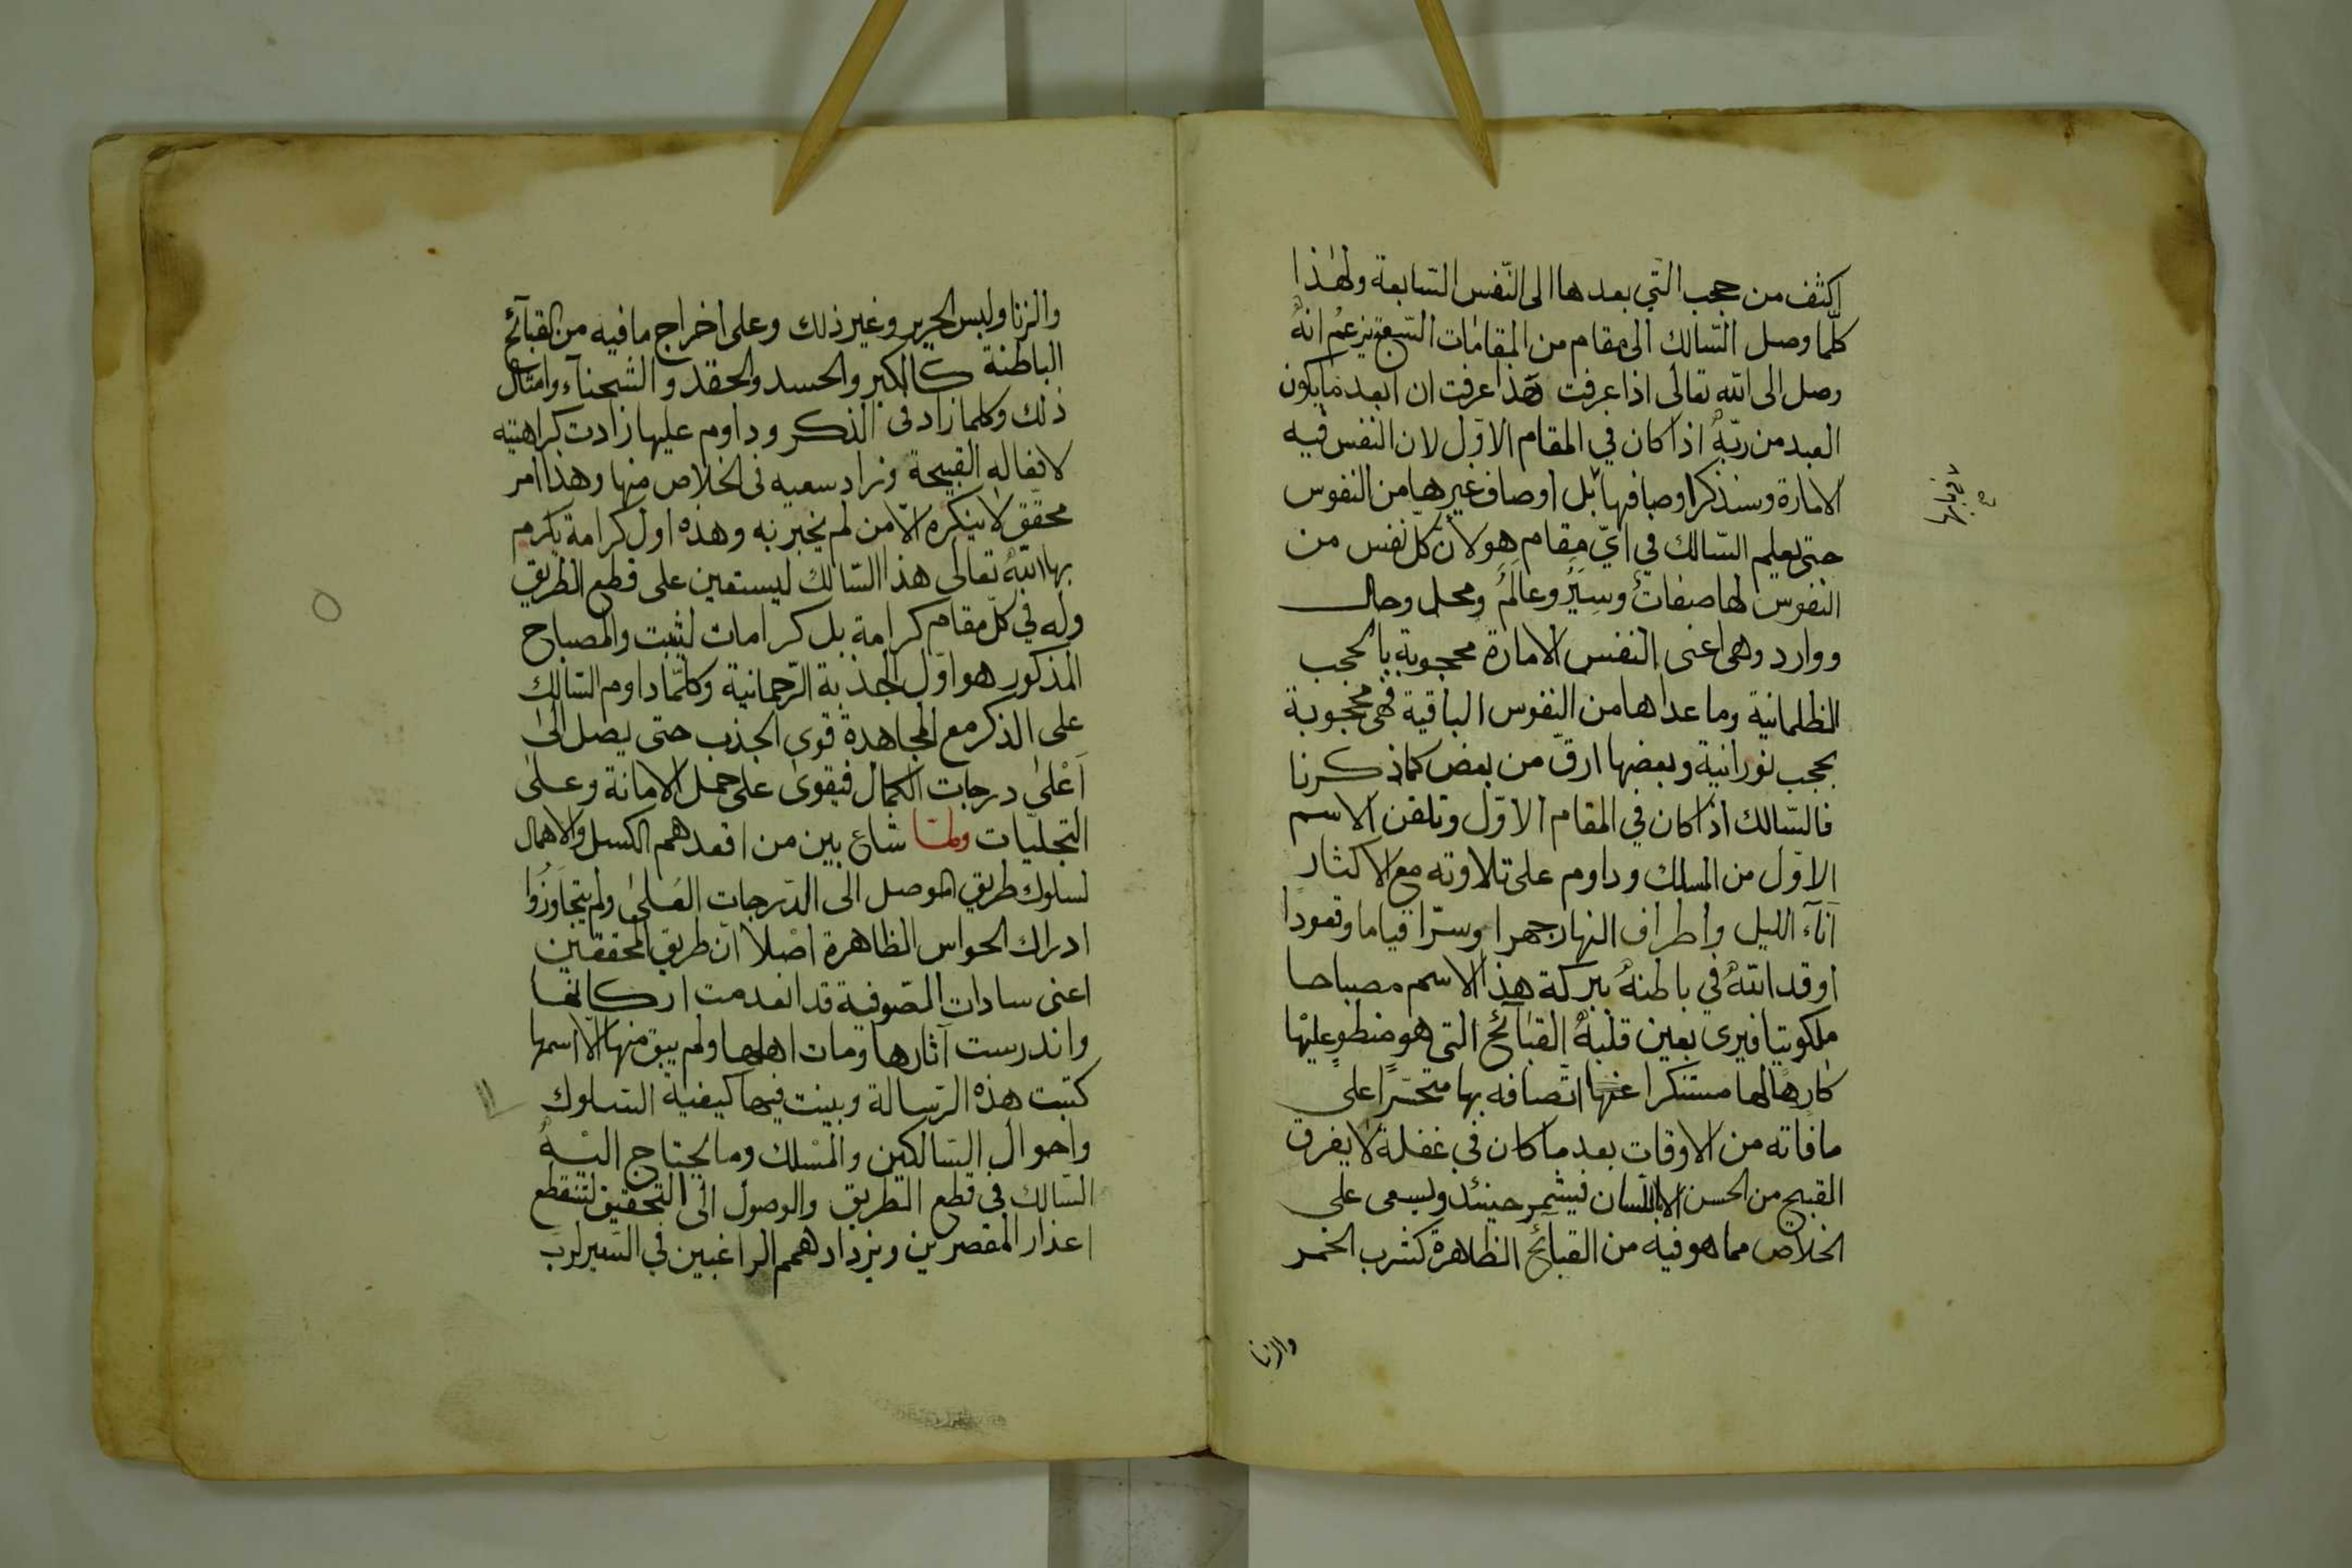 اكثف من حجب التي بعدها الى النّفس السّابعة ولهذا
كلّما وصل السّالك الى مقام من المقامات السّبع يزعم انهُ
وصل الى الله تعالى اذا عرفت هذا عرفت ان ابعد ما يكون
العبد من ربّهُ اذا كان في المقام الاوّل لان النفس فيه
الامارة وسنذكر اوصافها بل اوصاف غيرها من النفوس
حتى يعلم السّالك في ايّ مقام هو لانّ كلّ نفس من
النفوس لها صفات وسير وعالم ومحل وحال
ووارد وهى اعنى النفس الامارة محجوبة بالحجب
الظلمانية وما عداها من النفوس الباقية فهى محجوبة
بحجب نورانية وبعضها ارقّ من بعض كما ذكرنا
فالسّالك اذا كان في المقام الاوّل وتلقن الاسم
الاوّل من المسلك وداوم على تلاوته مع الاكثار
آناء الليل واطراف النهار جهرا وسرّا قياما وقعودا
اوقد اللهُ في باطنهُ ببركة هذا الاسم مصباحا
ملكوتيا فيرى بعين قلبهُ القبائح التى هو منطوٍ عليها
كارها لها مستنكرا عنها اتصافه بها متحسّرا على
مافاته من الاوقات بعد ما كان في غفلة لا يفرق
القبيح من الحسن الا باللسان فيشمر حينئذ ويسعى على
الخلاص مما هو فيه من القبائح الظاهرة كشرب الخمر
والزنا
والزنا ولبس الحرير وغير ذلك وعلى اخراج ما فيه من القبآئح
الباطنة كالكبر والحسد والحقد والشحنآء وامثال
ذلك وكلما زاد فى الذكر وداوم عليها زادت كراهته
لافعاله القبيحة وزاد سعيه فى الخلاص منها وهذا امر
محقق لا ينكره الّا من لم يخبر به وهذه اول كرامة يكرم
بها اللهُ تعالى هذا السّالك ليستعين على قطع الطريق
وله في كلّ مقام كرامة بل كرامات ليثبت والمصباح
المذكور هو اوّل الجذبة الرّحمانية وكلّما داوم السّالك
على الذكر مع المجاهدة قوى الجذب حتى يصل الى
اَعْلى درجات الكمال فيقوى على حمل الامانة وعلى
التجليّات ولمّا شاع بين من اقعدهم الكسل والاهمال
لسلوك طريق الموصل الى الدّرجات العُلى ولم يتجاوزُوا
ادراك الحواس الظاهرة اصْلا انّ طريق المحققين
اعنى سادات الصّوفية قد انعدمت اركانها
واندرست آثارها ومات اهلها ولم يبق منها الّا اسمها
كتبت هذه الرّسالة وبينت فيها كيفية السّلوك
واحوال السّالكين والمَسْلك وما يحتاج اليْهُ
السّالك في قطع الطريق والوصول الى التحقيق لتنقطع
اعذار المقصرين ويزداد همم الراغبين في السّير لرب